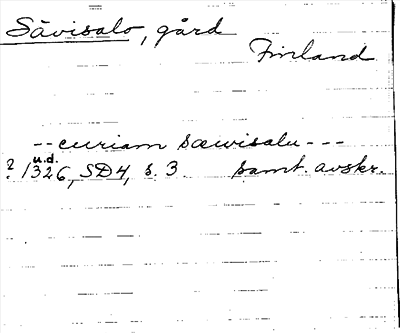 Sävisalo, gård
Finland
-- curiam sæwisalu ---
u.d.
? 1326, SD 4, s. 3 samt. avskr.